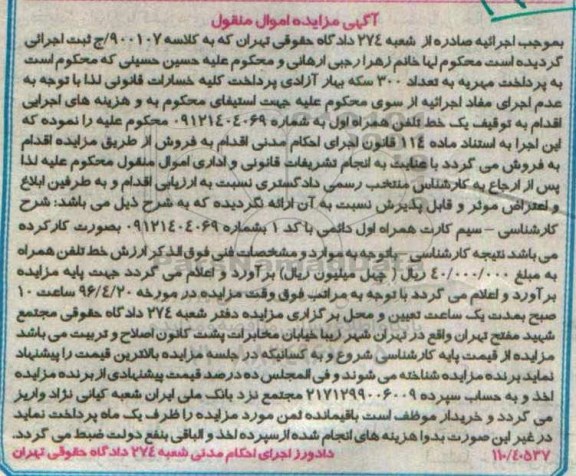 آگهی مزایده اموال منقول
بموجب اجرائیه صادره از شعبه ۲۷۴ دادگاه حقوقی تهران که به کلاسه ۹۰۰۱۰۷/ج ثبت اجرائی
گردیده است محکوم لها خانم زهرا رجبی ارهانی و محکوم علیه حسین حسینی که محکوم است
به پرداخت مهریه به تعداد ۳۰۰ سکه بهار آزادی پرداخت کلیه خسارات قانونی لذا با توجه به
عدم اجرای مفاد اجرائیه از سوی محکوم علیه جهت استیفای محکوم به و هزینه های اجرایی
اقدام به توقیف یک خط تلفن همراه اول به شماره ۰۹۱۲۱۴۰۴۰۶۹ محکوم علیه را نموده که
این اجرا به استناد ماده ۱۱۴ قانون اجرای احکام مدنی اقدام به فروش از طریق مزایده اقدام
به فروش می گردد با عنایت به انجام تشریفات قانونی و اداری اموال منقول محکوم علیه لذا
پس از ارجاع به کارشناس منتخب رسمی دادگستری نسبت به ارزیابی اقدام و به طرفین ابلاغ
و اعتراض موثر و قابل پذیرش نسبت به آن ارائه نگردیده که به شرح ذیل می باشد: شرح
کارشناسی – سیم کارت همراه اول دائمی با کد ۱ بشماره ۰۹۱۲۱۴۰۴۰۶۹ بصورت کارکرده
می باشد نتیجه کارشناسی – باتوجه به موارد و مشخصات فنی فوق الذکر ارزش خط تلفن همراه
به مبلغ ۴۰/۰۰۰/۰۰۰ ریال ( چهل میلیون ریال) برآورد و اعلام می گردد جهت پایه مزایده
برآورد و اعلام می گردد با توجه به مراتب فوق وقت مزایده در مورخه ۹۶/۴/۲۰ ساعت ۱۰
صبح بمدت یک ساعت تعیین و محل برگزاری مزایده دفتر شعبه ۲۷۴ دادگاه حقوقی مجتمع
شهید مفتح تهران واقع در تهران شهر زیبا خیابان مخابرات پشت کانون اصلاح و تربیت می باشد
مزایده از قیمت پایه کارشناسی شروع و به کسانیکه در جلسه مزایده بالاترین قیمت را پیشنهاد
نماید برنده مزایده شناخته می شوند و فی المجلس ده درصد قیمت پیشنهادی از برنده مزایده
اخذ و به حساب سپرده ۲۱۷۱۲۹۹۰۰۶۰۰۹ مجتمع نزد بانک ملی ایران شعبه کیانی نژاد واریز
می گردد و خریدار موظف است باقیمانده ثمن مورد مزایده را ظرف یک ماه پرداخت نماید
در غیر این صورت بدوا هزینه های انجام شده از سپرده اخذ و الباقی بنفع دولت ضبط می گردد.
۱۱۰/۴۰۵۳۷ دادورز اجرای احکام مدنی شعبه ۲۷۴ دادگاه حقوقی تهران